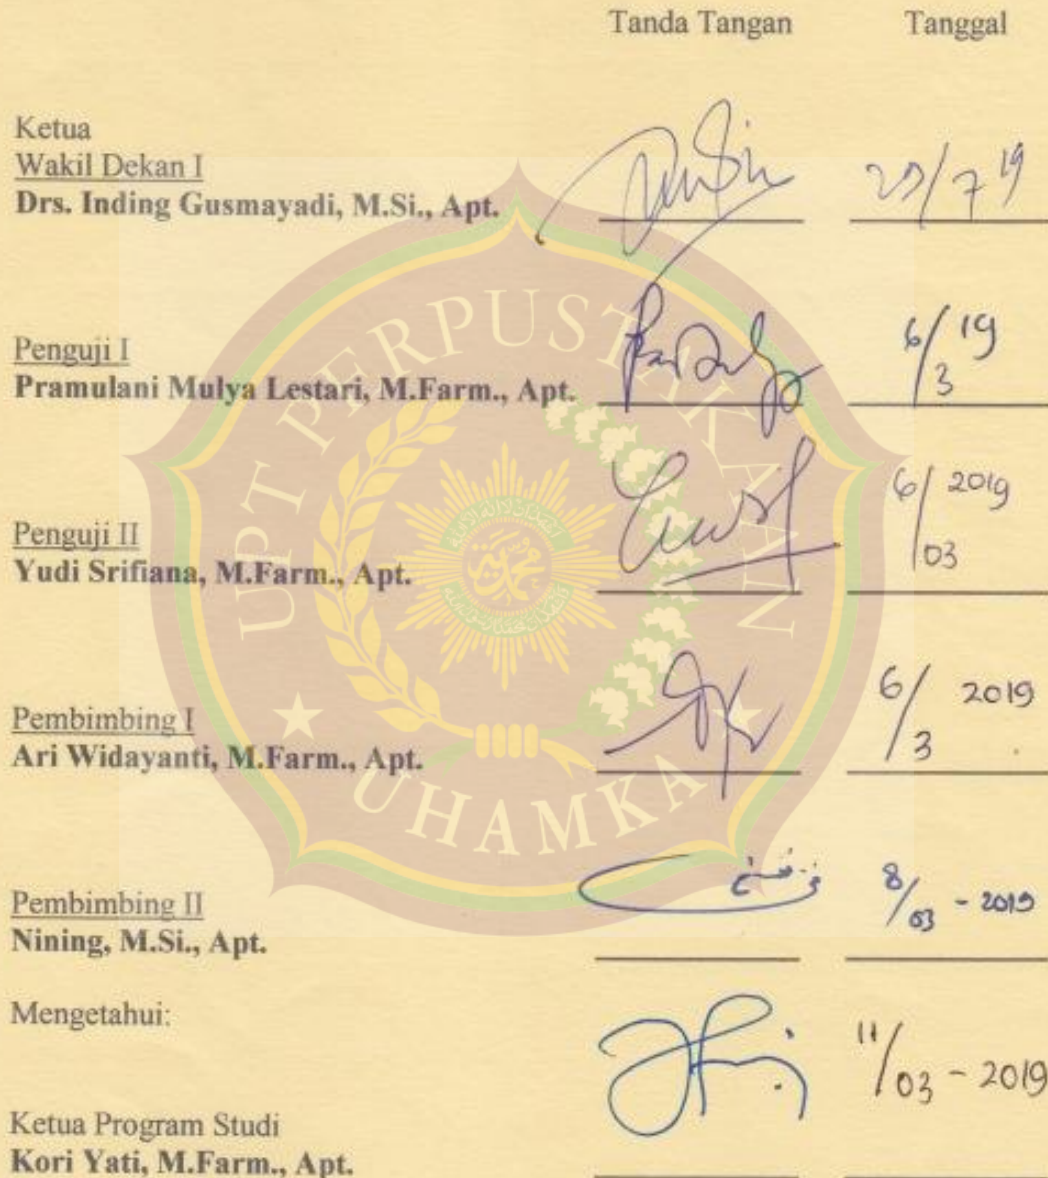 Tanda Tangan Tanggal
Ketua
Wakil Dekan I
Drs. Inding Gusmayadi, M.Si., Apt.
/7 19
Penguji I
Pramulani Mulya Lestari, M.Farm., Apt.
6/3 19
Penguji II
Yudi Srifiana, M.Farm., Apt.
6/03 2019
Pembimbing I
Ari Widayanti, M.Farm., Apt.
6/3 2019
Pembimbing II
Nining, M.Si., Apt.
8/03 - 2019
Mengetahui:
11/03 - 2019
Ketua Program Studi
Kori Yati, M.Farm., Apt.
UPT PERPUSTAKAAN
UHAMKA